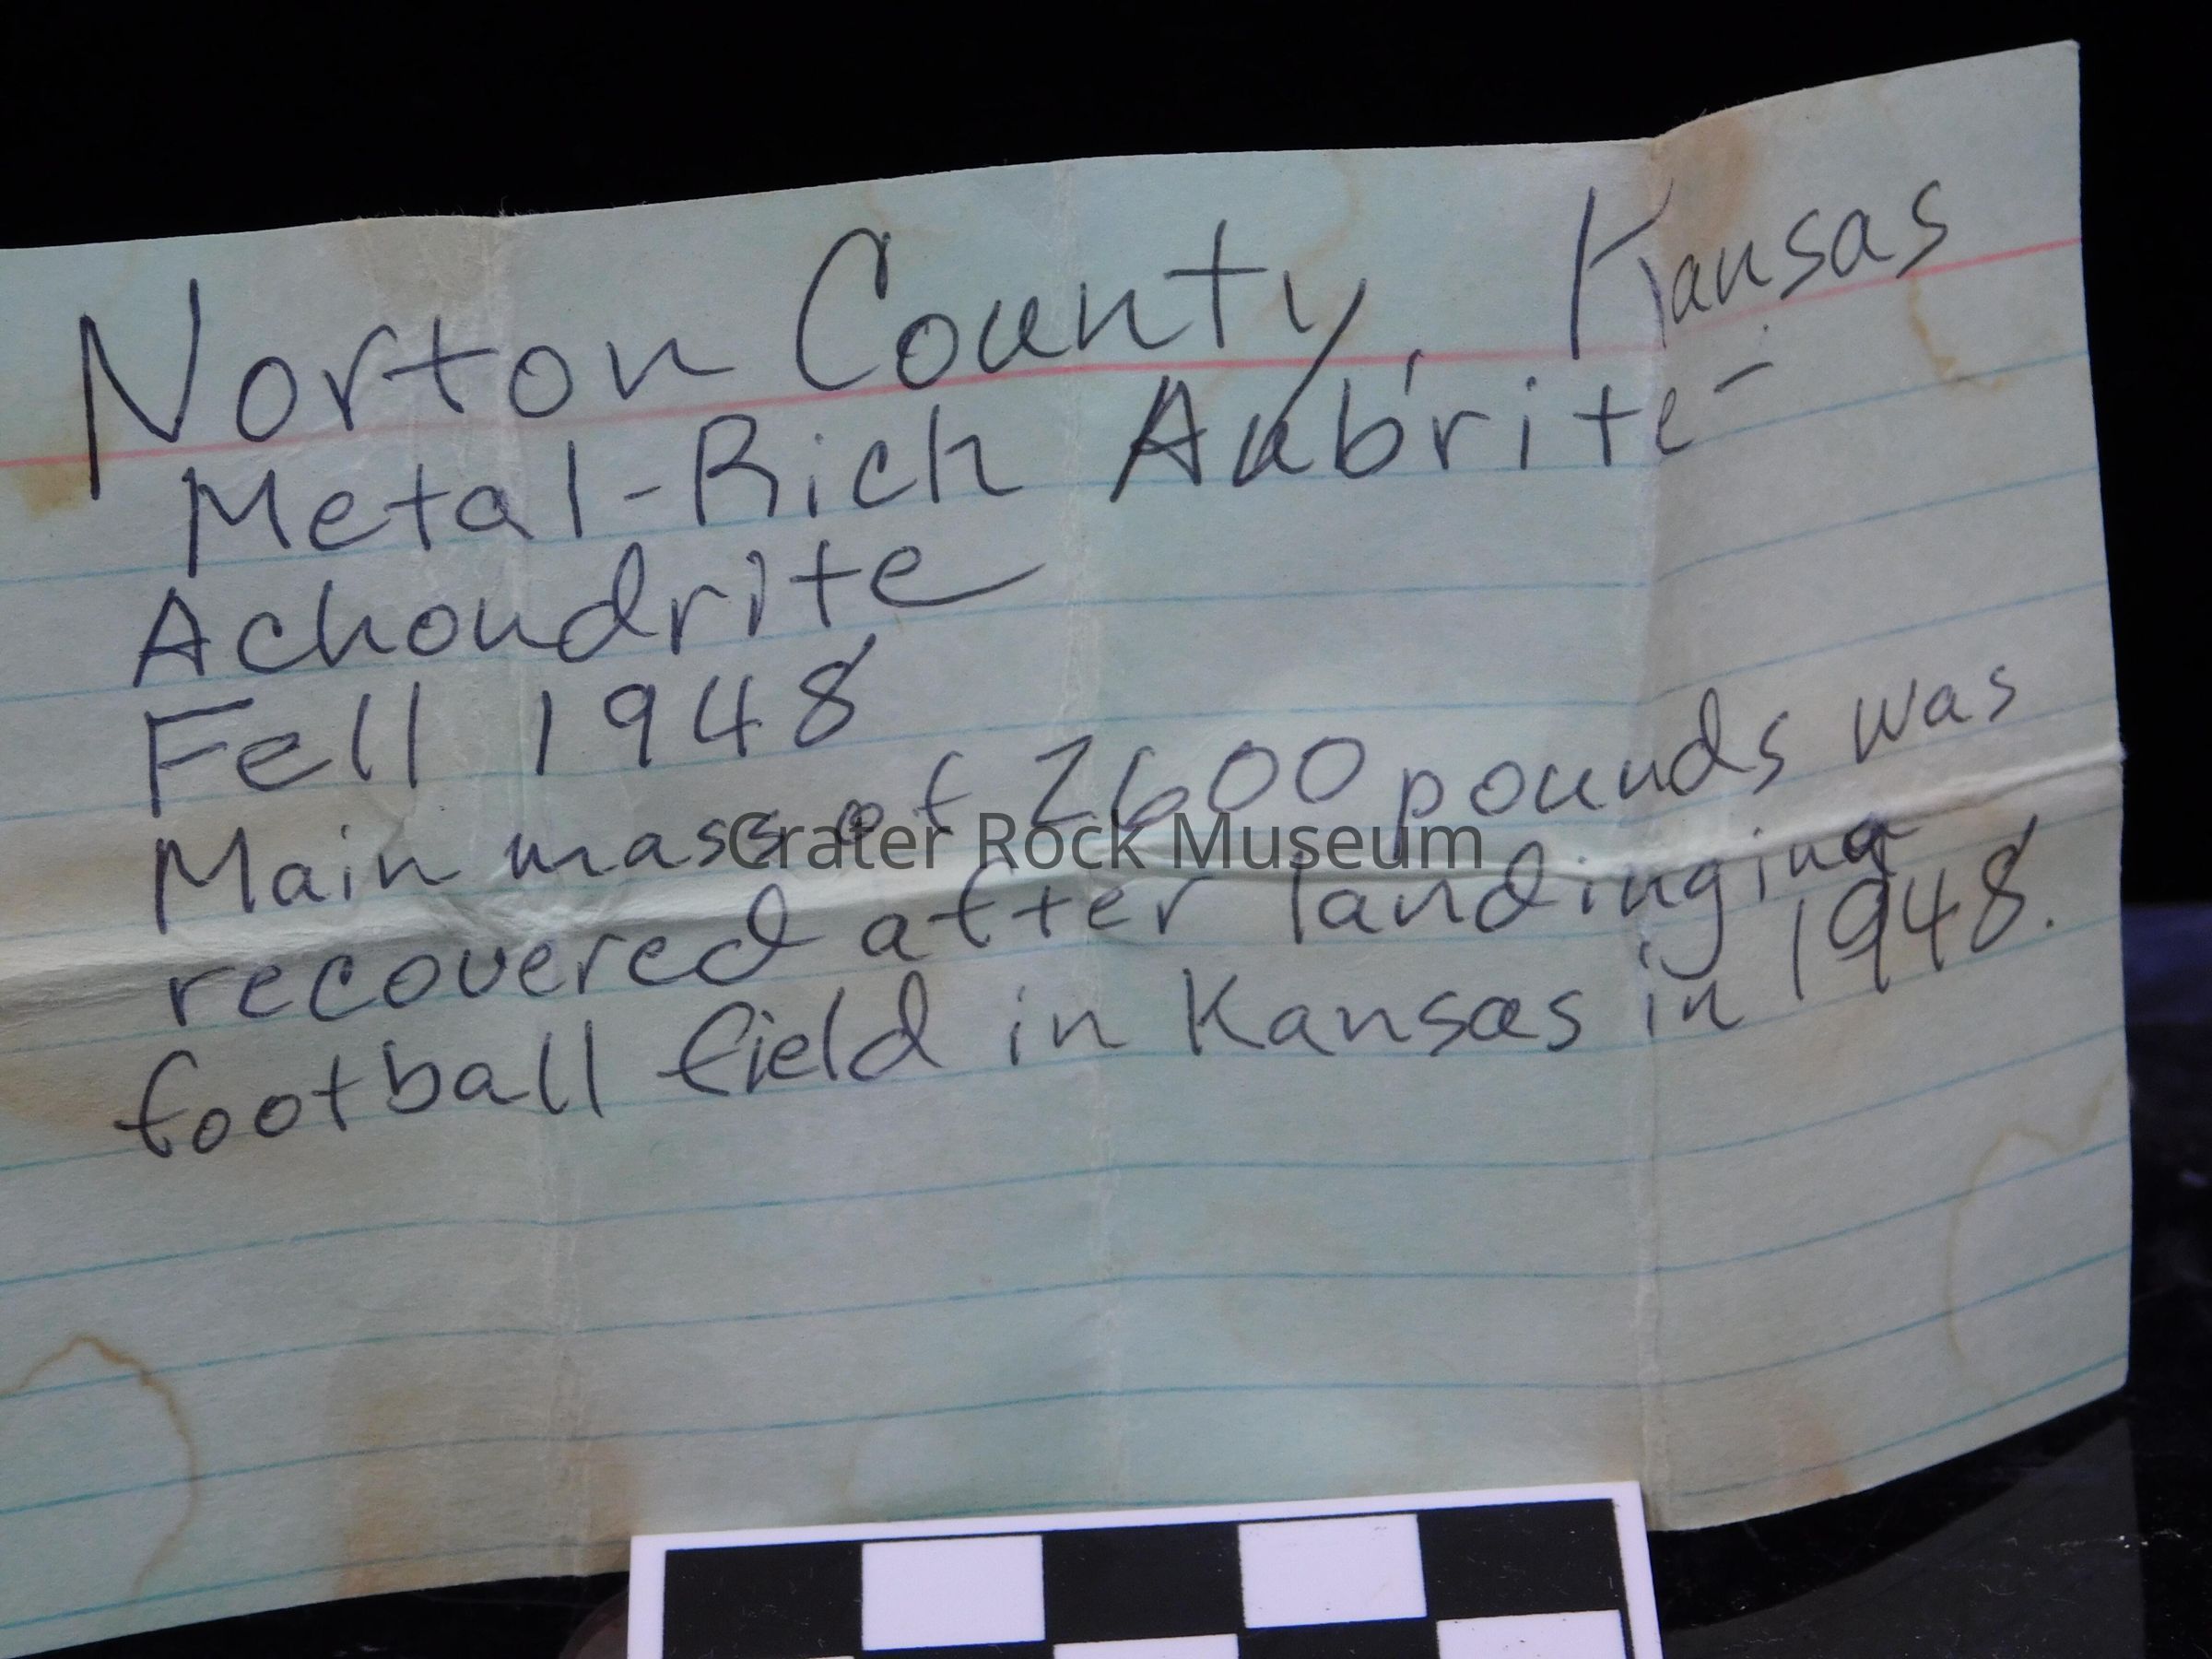 Norton County, Kansas
Metal-Rich Aubrite-
Achondrite
Fell 1948
Main mass of 2600 pounds was
recovered after landing in a
football field in Kansas in 1948.
Crater Rock Museum